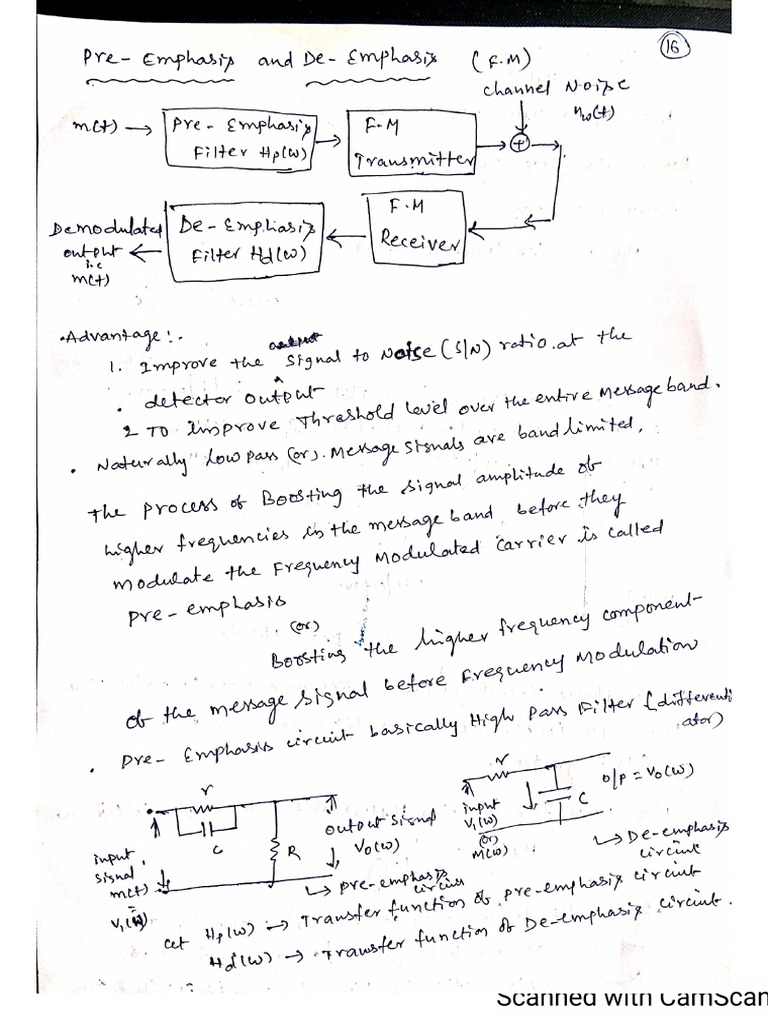 16
Pre-Emphasis and De-Emphasis (F.M)
channel Noise
nw(t)
m(t) → Pre-Emphasis
Filter Hp(ω)
F.M
Transmitter
+
F.M
Receiver
De-Emphasis
Filter Hd(ω)
Demodulated
output
i.e
m(t)
•Advantage:-
output
1. Improve the ^ signal to Noise (S/N) ratio at the
• detector output
2 To improve Threshold level over the entire message band.
• Naturally low pass (or) Message signals are bandlimited,
The process of Boosting the signal amplitude of
higher frequencies in the message band before they
modulate the Frequency Modulated carrier is called
pre-emphasis
(or)
Boosting the higher frequency component
of the message signal before Frequency Modulation
• Pre-Emphasis circuit basically High Pass Filter (differenti
ator)
r
c
R
input
signal
m(t)
=
V1(ω)
output signal
Vo(ω)
↳ pre-emphasis
circuit
r
input
V1(ω)
(or)
M(ω)
C
o/p = Vo(ω)
↳ De-emphasis
circuit
Let Hp(ω) → Transfer function of pre-emphasis circuit
Hd(ω) → Transfer function of De-emphasis circuit.
Scanned with CamScan